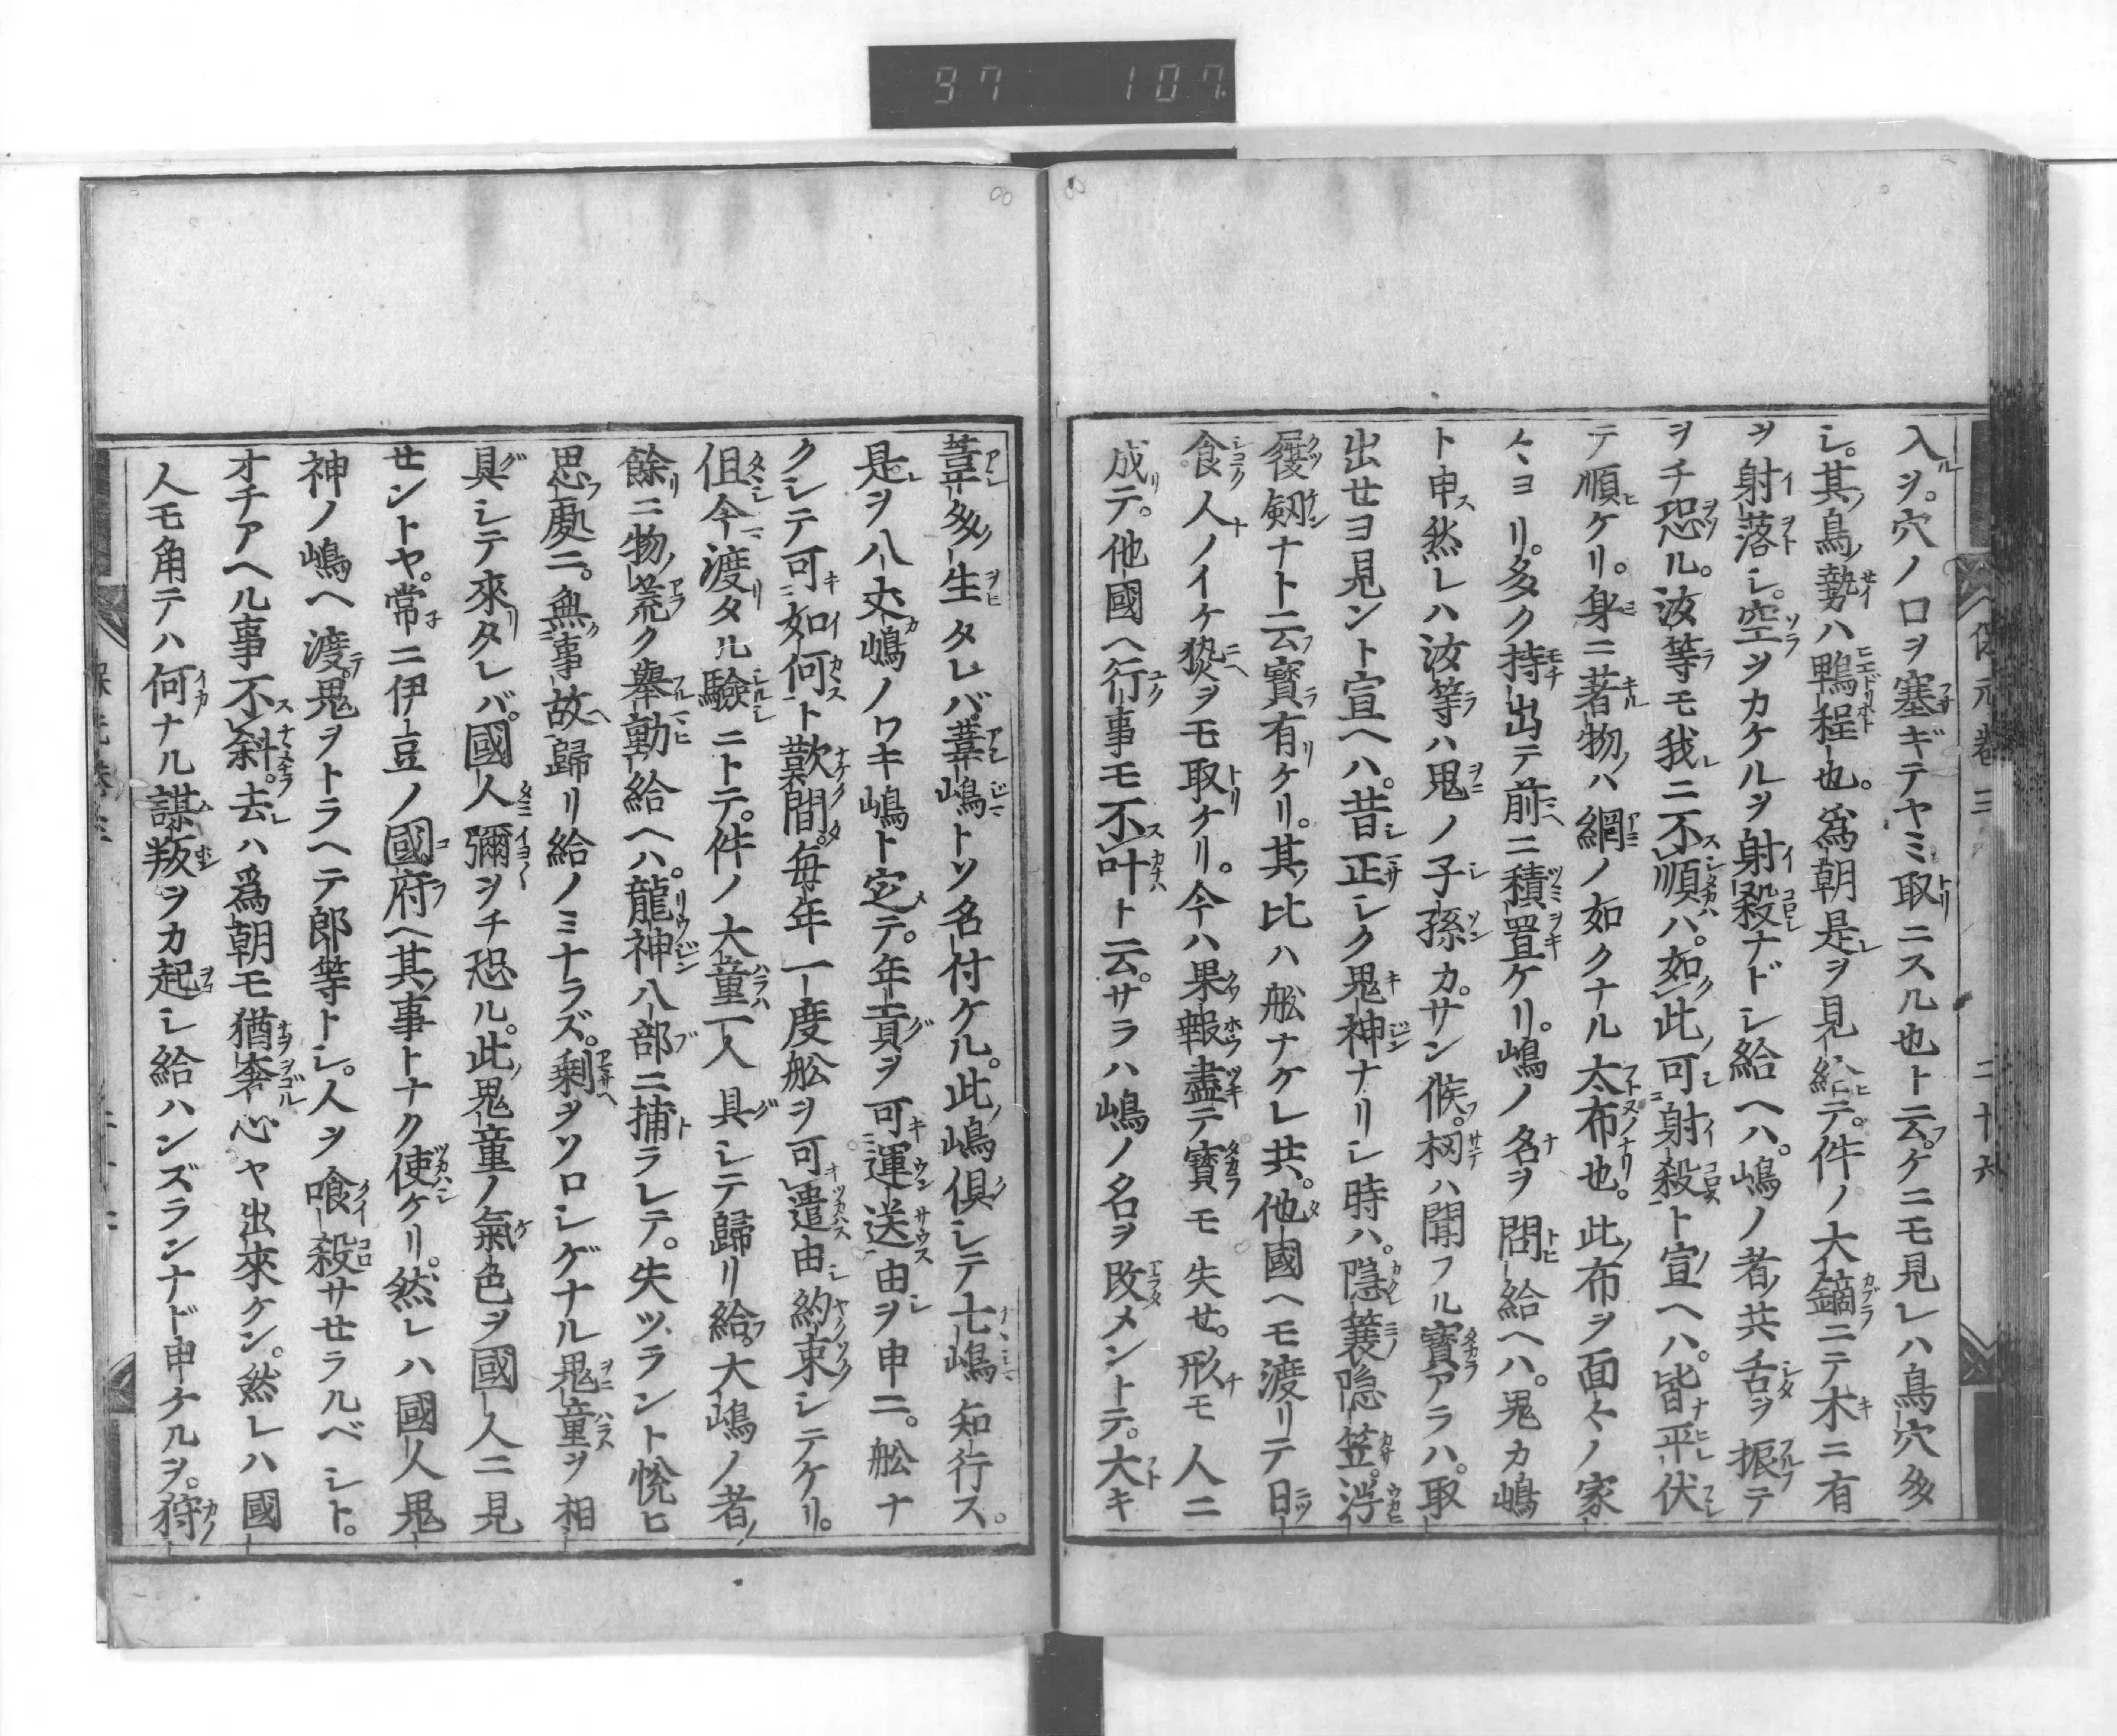 97 107
保元巻三 二十六
入ヲ。穴ノ口ヲ塞ギテヤミ取ニスル也ト云。ケニモ見レハ鳥穴多
シ。其鳥勢ハ鴨程也。為朝是ヲ見給テ。件ノ大鏑ニテ木ニ有
ヲ射落シ。空ヲカケルヲ射殺ナドシ給ヘハ。嶋ノ者共舌ヲ振テ
ヲチ恐ル。汝等モ我ニ不順ハ。如此可射殺ト宣ヘハ。皆平伏
テ順ケリ。身ニ著物ハ網ノ如クナル太布也。此布ヲ面々ノ家
々ヨリ。多ク持出テ前ニ積置ケリ。嶋ノ名ヲ問給ヘハ。鬼カ嶋
ト申。然レハ汝等ハ鬼ノ子孫カ。サン候。扨ハ聞フル寶アラハ。取
出セヨ見ント宣ヘハ。昔正シク鬼神ナリシ時ハ。隠蓑隠笠。浮
履剱ナト云寶有ケリ。其比ハ舩ナケレ共。他國ヘモ渡リテ日
食人ノイケ贄ヲモ取ケリ。今ハ果報盡テ寶モ失セ。形モ人ニ
成テ。他國ヘ行事モ不叶ト云。サラハ嶋ノ名ヲ改メントテ。大キ
葦多生タレバ。葦嶋トソ名付ケル。此嶋倶シテ七嶋知行ス。
是ヲ八丈嶋ノワキ嶋ト定テ。年貢ヲ可運送由ヲ申ニ。舩ナ
クシテ可如何ト歎間。毎年一度舩ヲ可遣由約束シテケリ。
但今渡タル驗ニトテ。件ノ大童一人具シテ歸リ給。大嶋ノ者
餘ニ物荒ク舉動給ヘハ。龍神八部ニ捕ラレテ。失ツラント悦ヒ
思處ニ。無事故歸リ給ノミナラズ。剰ヲソロシゲナル鬼童ヲ相
具シテ來タレバ。國人彌ヲチ恐ル。此鬼童ノ氣色ヲ國人ニ見
セントヤ。常ニ伊豆ノ國府ヘ其事トナク使ケリ。然レハ國人鬼
神ノ嶋ヘ渡。鬼ヲトラヘテ郎等トシ。人ヲ喰殺サセラルベシト。
オチアヘル事不斜。去ハ為朝モ猶奢心ヤ出來ケン。然レハ國
人モ角テハ何ナル謀叛ヲカ起シ給ハンズランナド申ケルヲ。狩